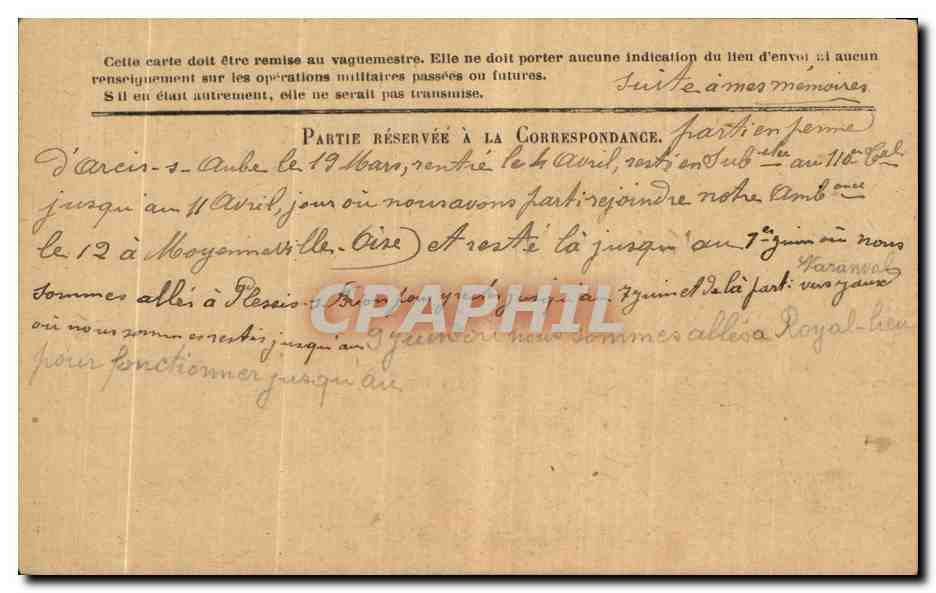 Cette carte doit être remise au vaguemestre. Elle ne doit porter aucune indication du lieu d'envoi ni aucun
renseignement sur les opérations militaires passées ou futures.
S'il en était autrement, elle ne serait pas transmise.
suite à mes mémoires
PARTIE RÉSERVÉE À LA CORRESPONDANCE.
parti en perme
d'Arcis-s-Aube le 19 Mars, rentré le 4 Avril, resti en Sub au 110
jusqu au 11 Avril, jour où nous avons parti rejoindre notre Amb ance
le 12 à Moyenneville-Oise) et resté là jusqu'au 1er juin où nous
sommes allés à Plessis-s-Brion pour y rester jusqu'au 7 juin et de là parti vers
Varanval
où nous sommes restés jusqu'au 9 juin nous sommes allés a Royal-lieu
pour fonctionner jusqu'au
CPAPHIL